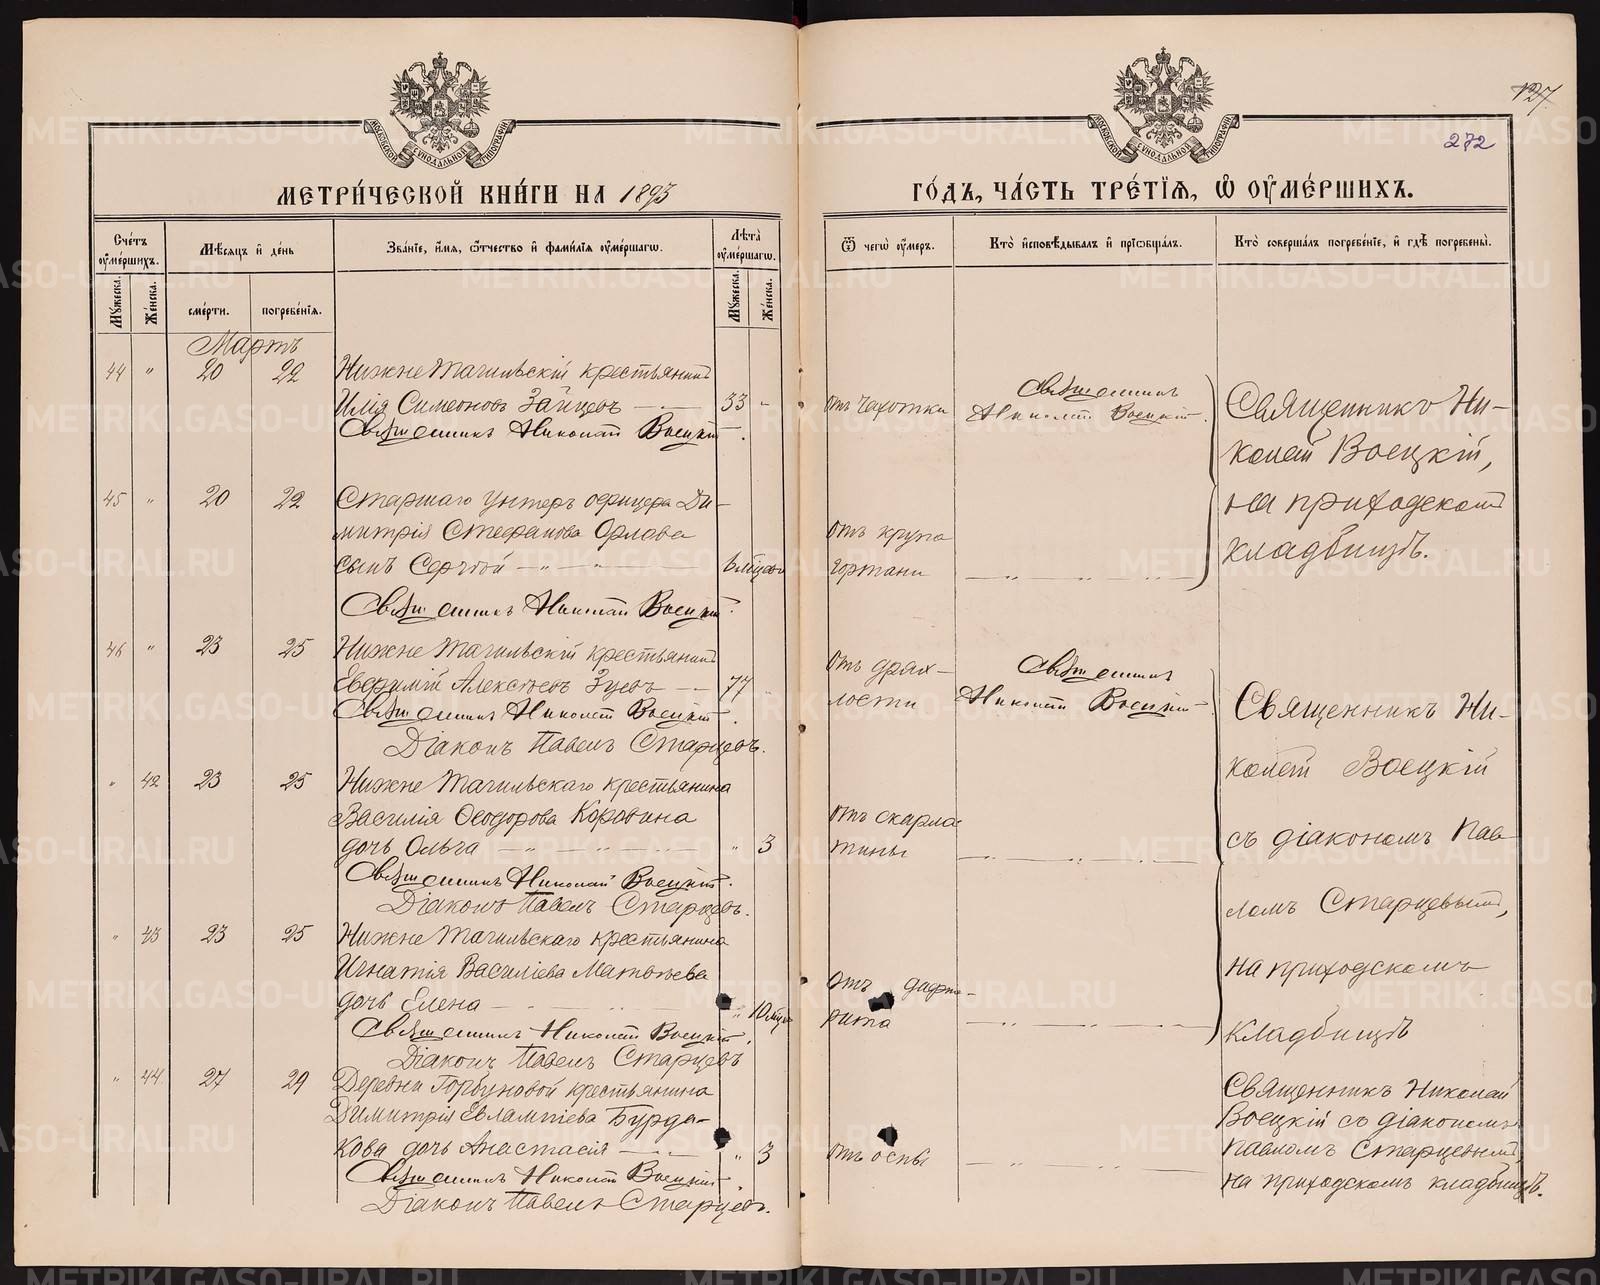 127
272
МОСКОВСКОЙ СУНОДАЛЬНОЙ ТИПОГРАФІИ
МОСКОВСКОЙ СУНОДАЛЬНОЙ ТИПОГРАФІИ
МЕТРИ́ЧЕСКОЙ КНИ́ГИ НА 1893
ГО́ДЪ, ЧА́СТЬ ТРЕ́ТІѦ, Ѿ ОУМЕ́РШИХЪ.
Сче́тъ оуме́ршихъ.
Мѣ́сяцъ и де́нь
Зва́ніе, и́мя, ѻ́тчество и фами́лія оуме́ршагѡ.
Лѣта̀ оуме́ршагѡ.
Ѿ чегѡ̀ оу́меръ.
Кто̀ исповѣ́дывалъ и прїѡбща́лъ.
Кто̀ соверша́лъ погребе́ніе, и гдѣ̀ погребены̀.
Мꙋ́жеска.
Же́нска.
сме́рти.
погребе́нія.
Мꙋ́жеска.
Же́нска.
Мартъ
44 " 20 22 Нижне Тагильскій крестьянинъ
Илія Симеоновъ Зайцевъ 33 -
Священникъ Николай Воецкій.
отъ чахотки
Священникъ
Николай Воецкій.
Священникъ Ни-
колай Воецкій,
на приходскомъ
кладбищѣ.
45 " 20 22 Старшаго унтеръ офицера Ди-
митрія Стефанова Орлова
сынъ Сергѣй 6 мѣсяцевъ
Священникъ Николай Воецкій.
отъ крупа
гортани
46 " 23 25 Нижне Тагильскій крестьянинъ
Евфимій Алексѣевъ Зуевъ 77
Священникъ Николай Воецкій.
Діаконъ Павелъ Старцевъ.
отъ дрях-
лости
Священникъ
Николай Воецкій.
Священникъ Ни-
колай Воецкій
съ діакономъ Пав-
ломъ Старцевымъ,
на приходскомъ
кладбищѣ
" 42 23 25 Нижне Тагильскаго крестьянина
Василія Ѳеодорова Коровина
дочь Ольга " 3
Священникъ Николай Воецкій.
Діаконъ Павелъ Старцевъ.
отъ скарла-
тины
" 43 23 25 Нижне Тагильскаго крестьянина
Игнатія Василіева Матвѣева
дочь Елена " 10 мѣс
Священникъ Николай Воецкій.
Діаконъ Павелъ Старцевъ
отъ дифте-
рита
" 44 27 29 Деревни Горбуновой крестьянина
Димитрія Евлампіева Бурда-
кова дочь Анастасія " 3
Священникъ Николай Воецкій.
Діаконъ Павелъ Старцевъ.
отъ оспы
Священникъ Николай
Воецкій съ діакономъ
Павломъ Старцевымъ,
на приходскомъ кладбищѣ.
METRIKI.GASO-URAL.RU